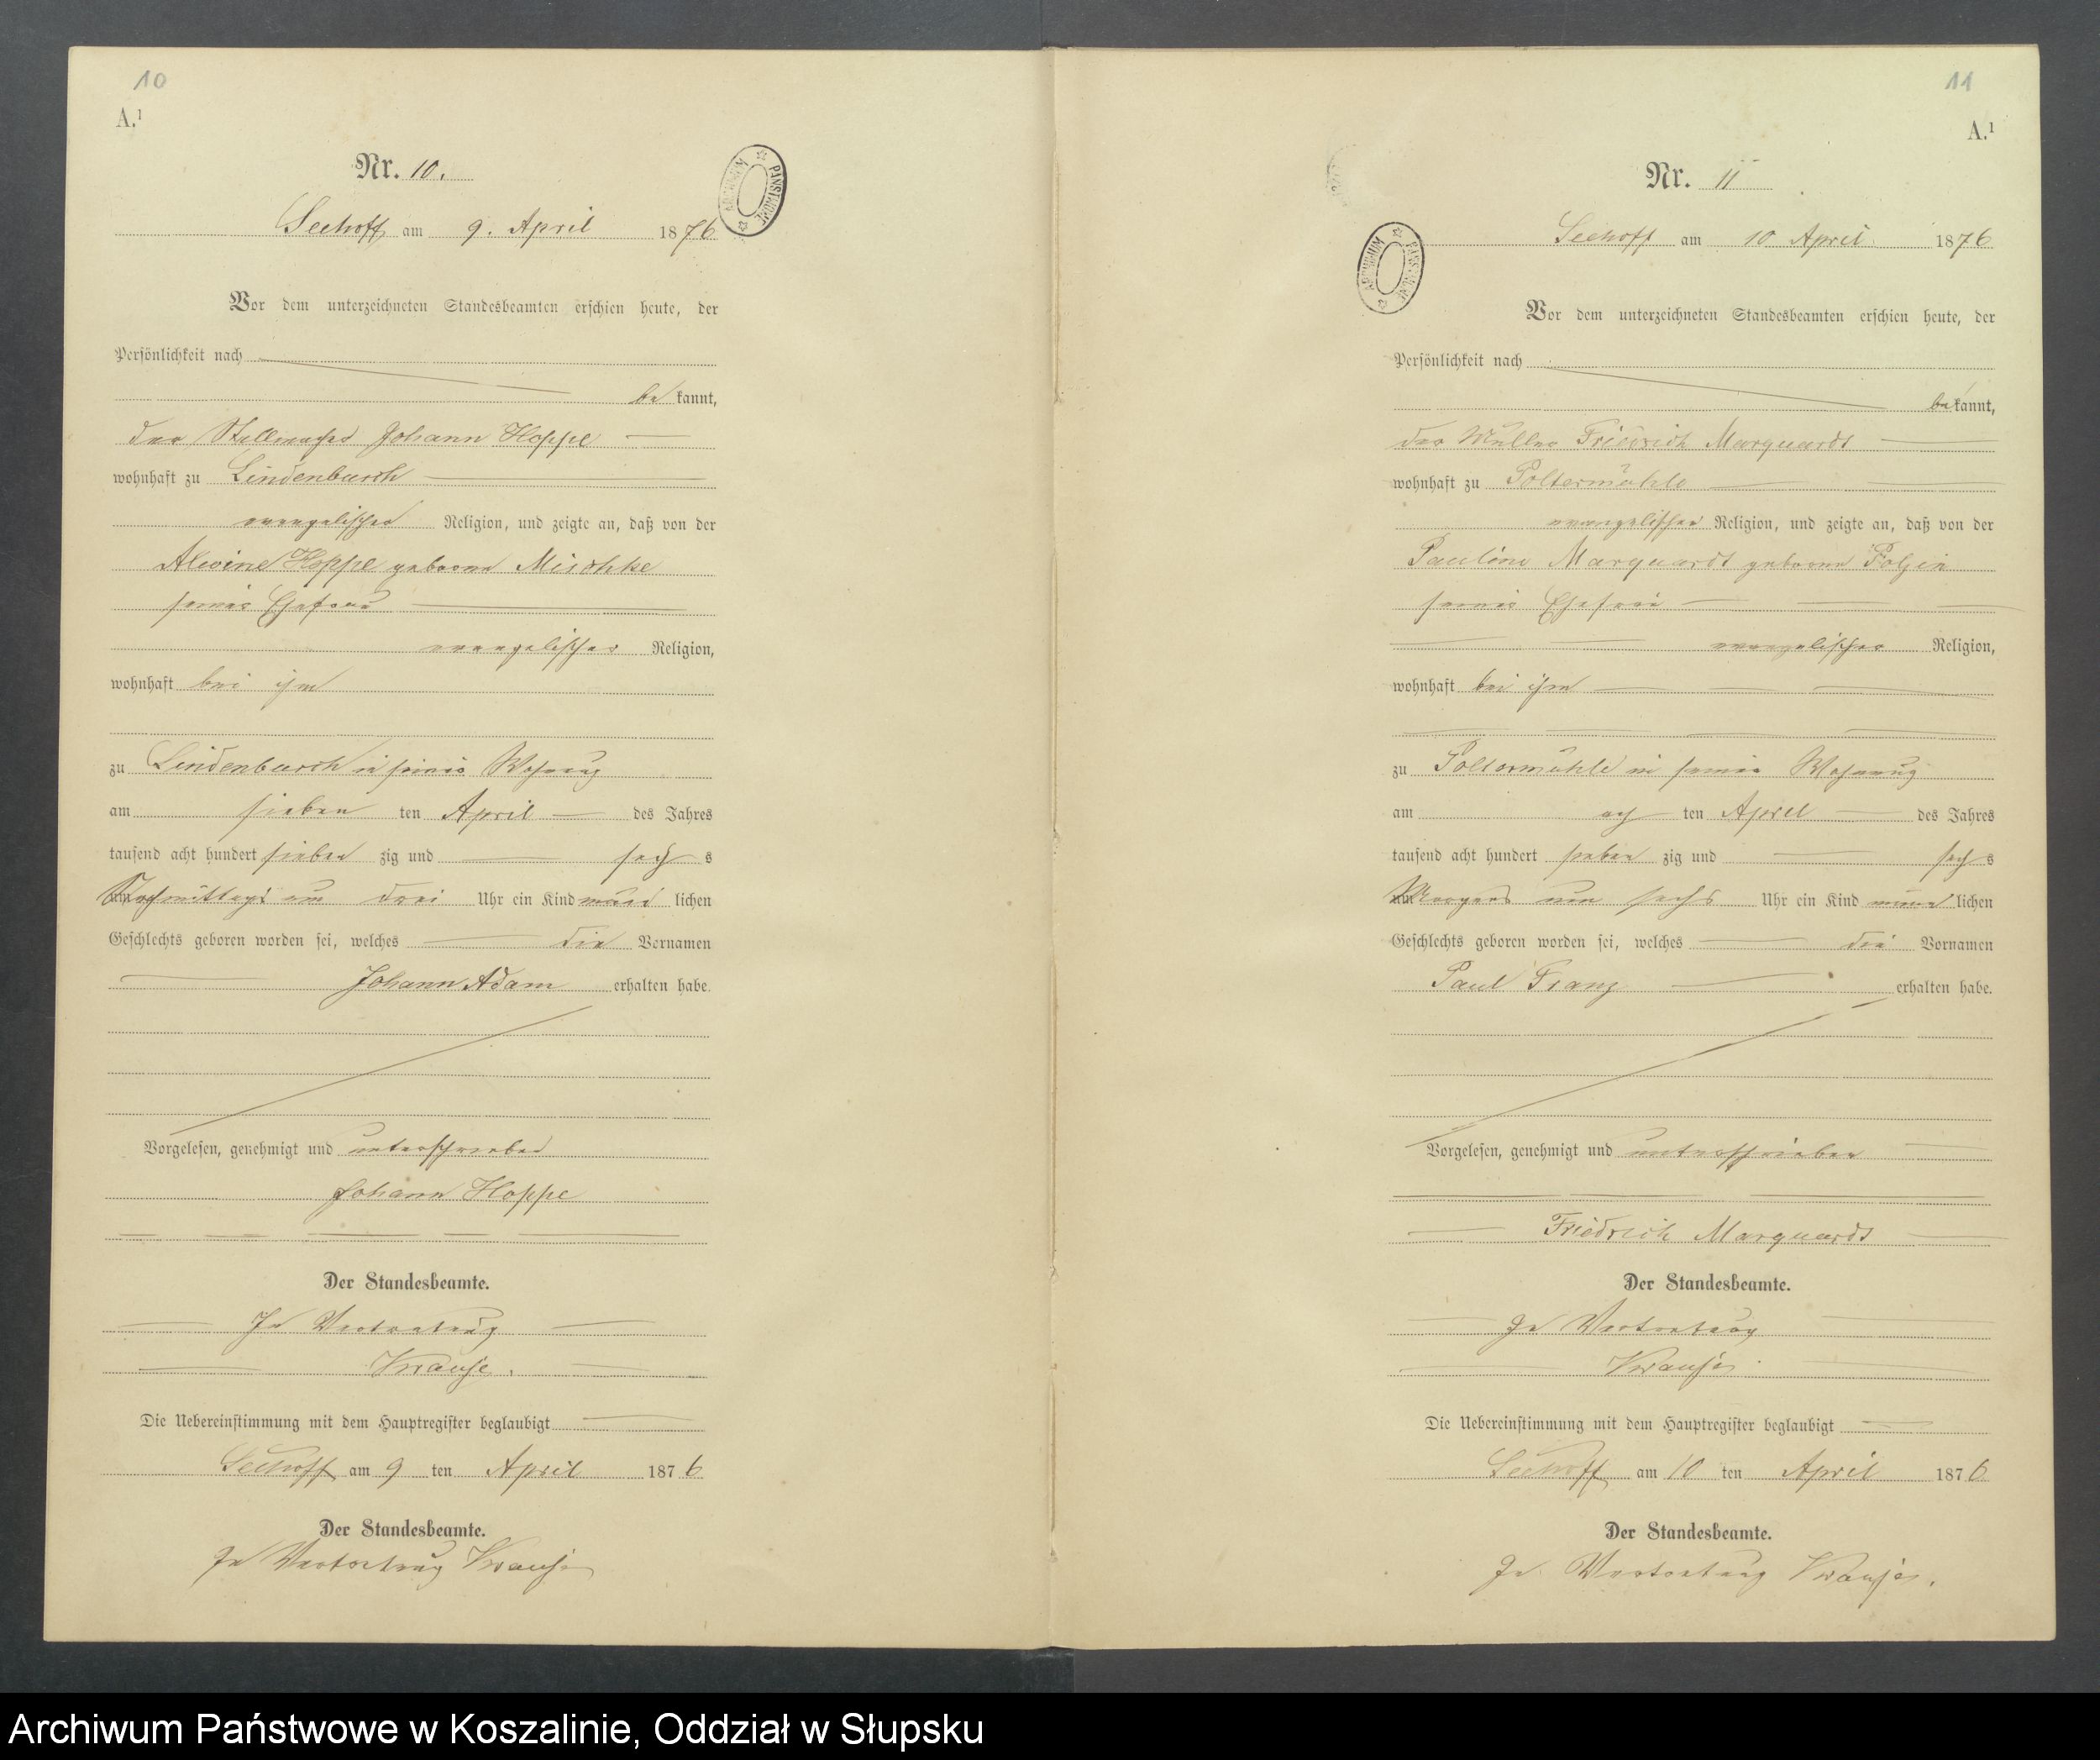 10
A.¹
Nr. 10.
ARCHIWUM PAŃSTWOWE
Seehoff am 9. April 1876
Vor dem unterzeichneten Standesbeamten erschien heute, der
Persönlichkeit nach
be kannt,
der Stellmacher Johann Hoppe
wohnhaft zu Lindenbusch
evangelischer Religion, und zeigte an, daß von der
Alwine Hoppe geborne Mischke
seiner Ehefrau
evangelischer Religion,
wohnhaft bei ihm
zu Lindenbusch in seiner Wohnung
am sieben ten April des Jahres
tausend acht hundert sieben zig und sech s
Nachmittags um drei Uhr ein Kind männ lichen
Geschlechts geboren worden sei, welches die Vornamen
Johann Adam erhalten habe.
Vorgelesen, genehmigt und unterschrieben
Johann Hoppe
Der Standesbeamte.
In Vertretung
Krause.
Die Uebereinstimmung mit dem Hauptregister beglaubigt
Seehoff am 9 ten April 1876
Der Standesbeamte.
In Vertretung Krause
11
A.¹
Nr. 11
ARCHIWUM PAŃSTWOWE
Seehoff am 10 April 1876
Vor dem unterzeichneten Standesbeamten erschien heute, der
Persönlichkeit nach
be kannt,
der Müller Friedrich Marquardt
wohnhaft zu Poltermühle
evangelischer Religion, und zeigte an, daß von der
Pauline Marquardt geborne Polzin
seiner Ehefrau
evangelischer Religion,
wohnhaft bei ihm
zu Poltermühle in seiner Wohnung
am ach ten April des Jahres
tausend acht hundert sieben zig und sech s
Morgens um sechs Uhr ein Kind männ lichen
Geschlechts geboren worden sei, welches die Vornamen
Paul Franz erhalten habe.
Vorgelesen, genehmigt und unterschrieben
Friedrich Marquardt
Der Standesbeamte.
In Vertretung
Krause.
Die Uebereinstimmung mit dem Hauptregister beglaubigt
Seehoff am 10 ten April 1876
Der Standesbeamte.
In Vertretung Krause.
Archiwum Państwowe w Koszalinie, Oddział w Słupsku